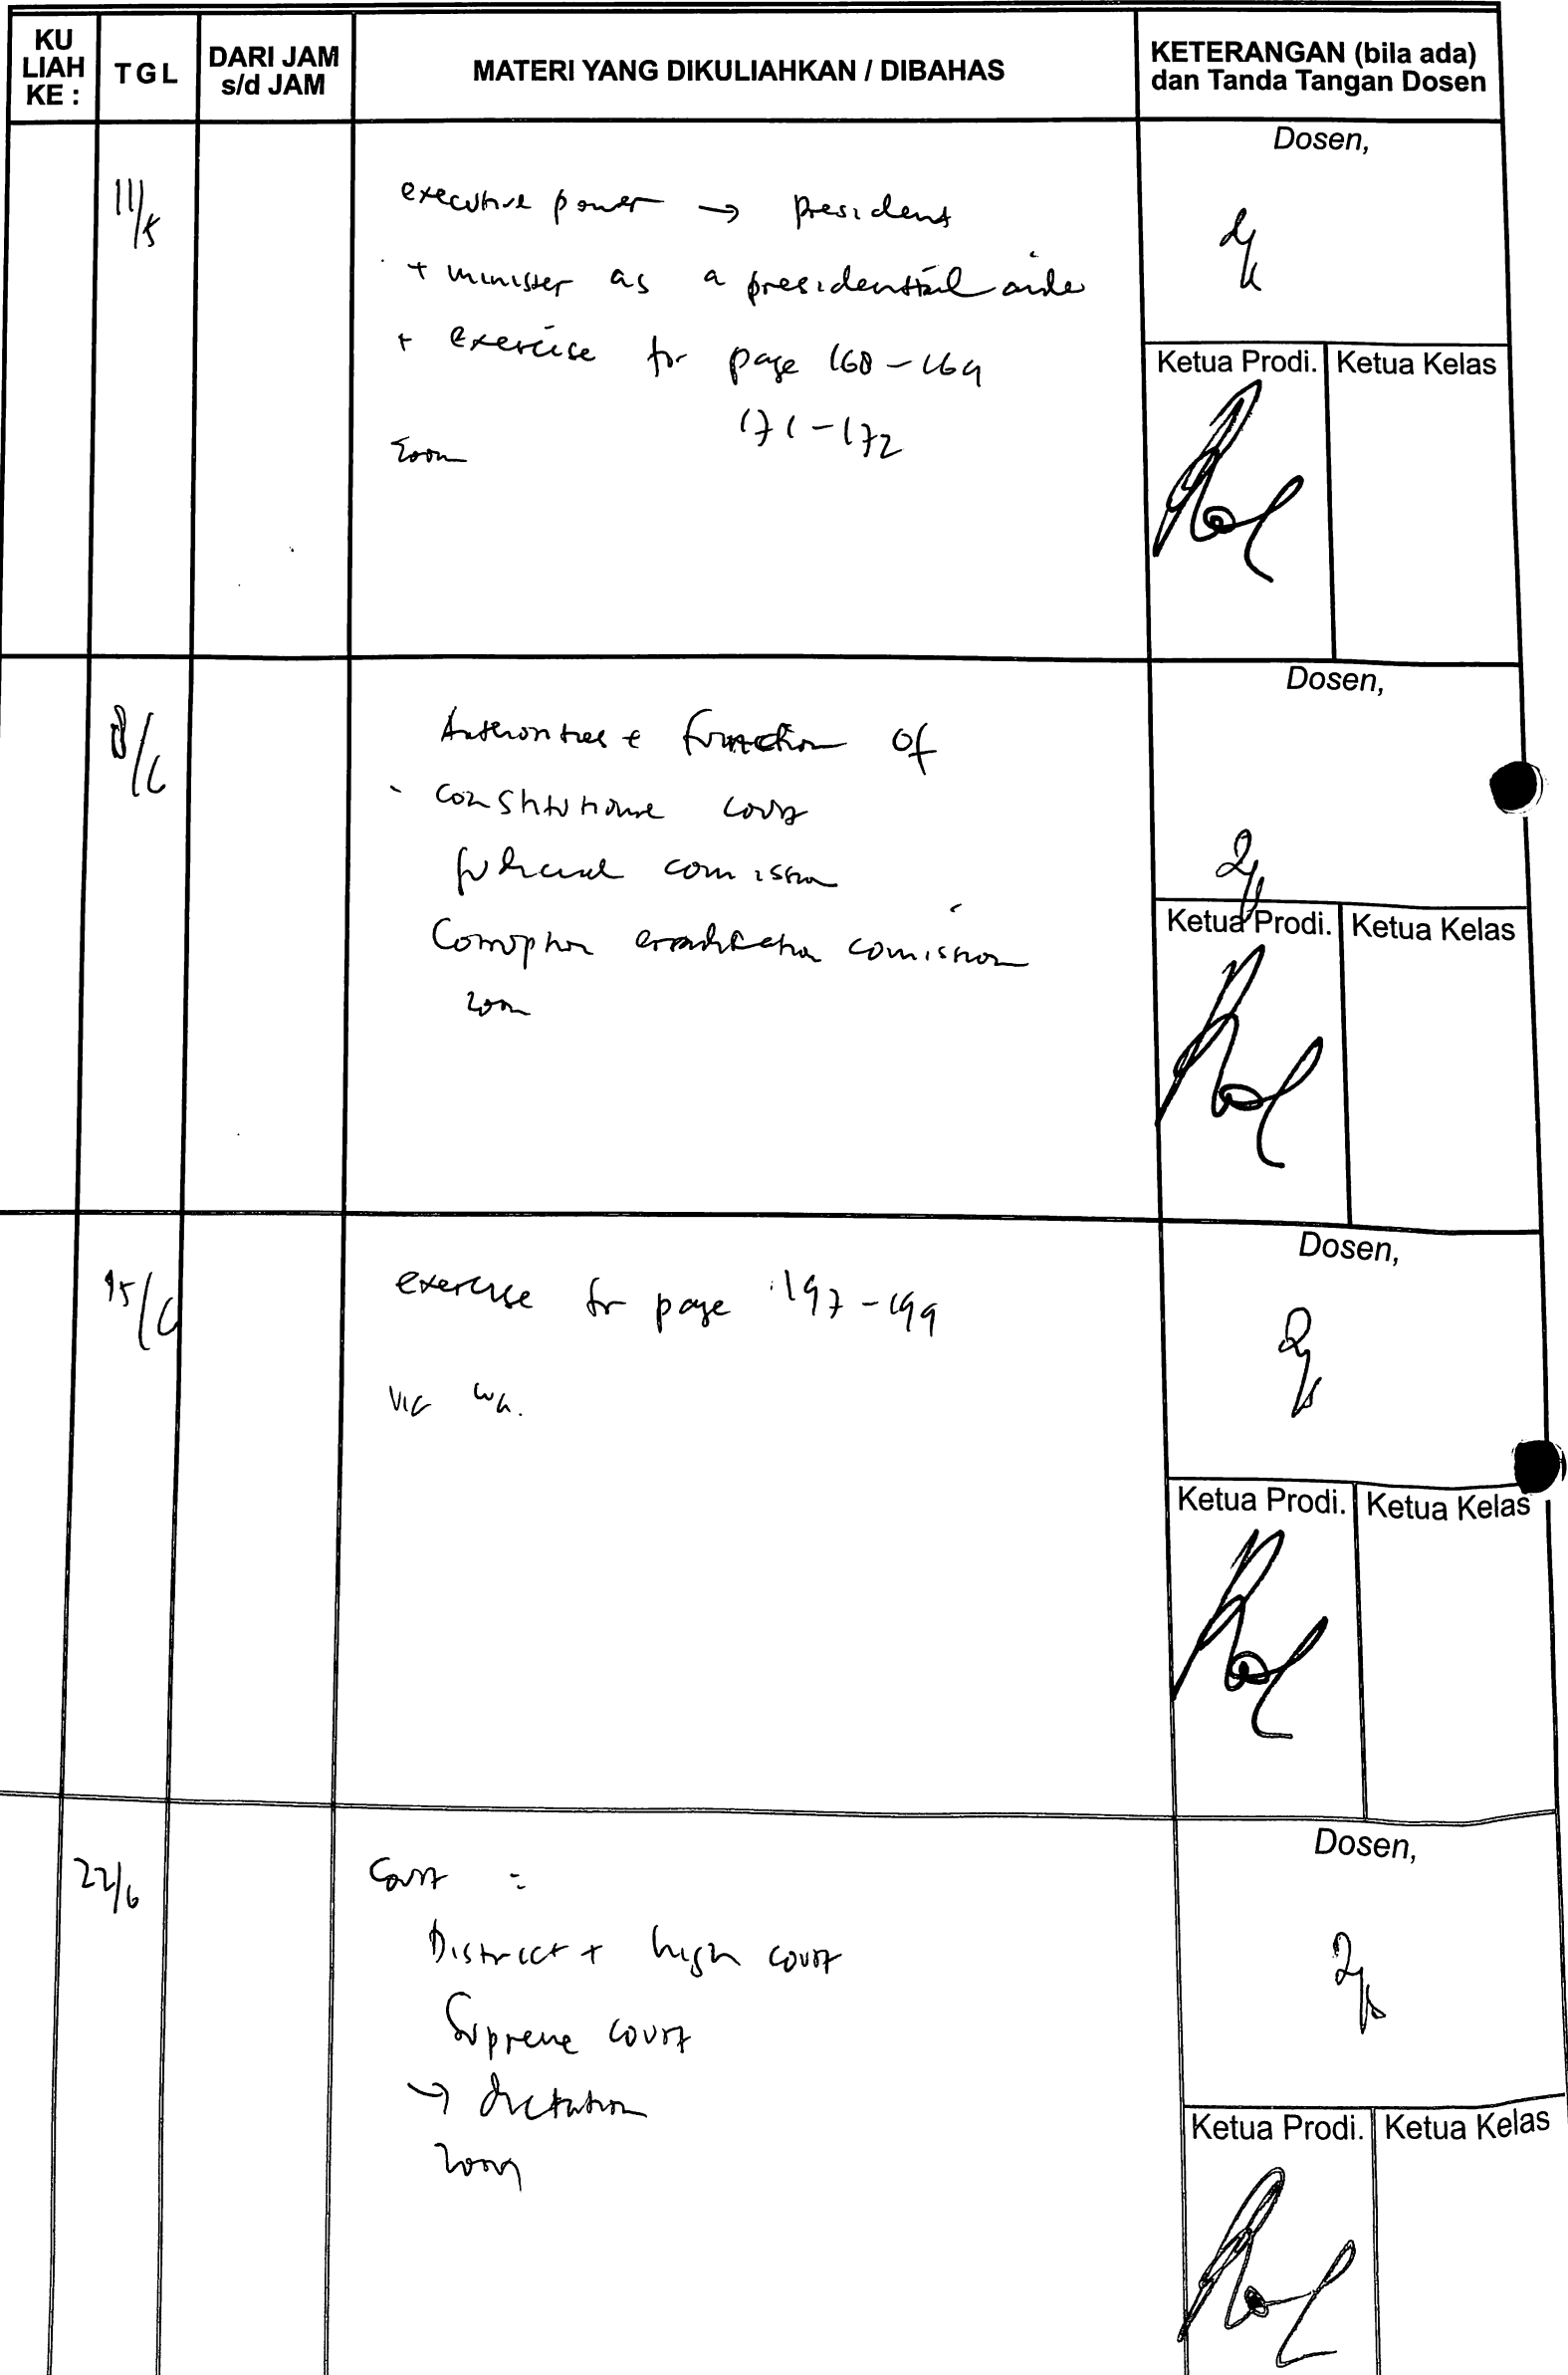 KU LIAH KE :
TGL
DARI JAM s/d JAM
MATERI YANG DIKULIAHKAN / DIBAHAS
KETERANGAN (bila ada) dan Tanda Tangan Dosen
Dosen,
11/5
executive power → president
+ minister as a presidential aide
+ exercise for page 168-169
171-172
Zoom
Ketua Prodi.
Ketua Kelas
Dosen,
8/6
Authorities + function of
- constitutional court
judicial comission
Corruption eradication comission
zoom
Ketua Prodi.
Ketua Kelas
Dosen,
15/6
exercise for page 197-199
via wa.
Ketua Prodi.
Ketua Kelas
Dosen,
22/6
Court :
District + high court
Supreme court
→ dictation
zoom
Ketua Prodi.
Ketua Kelas